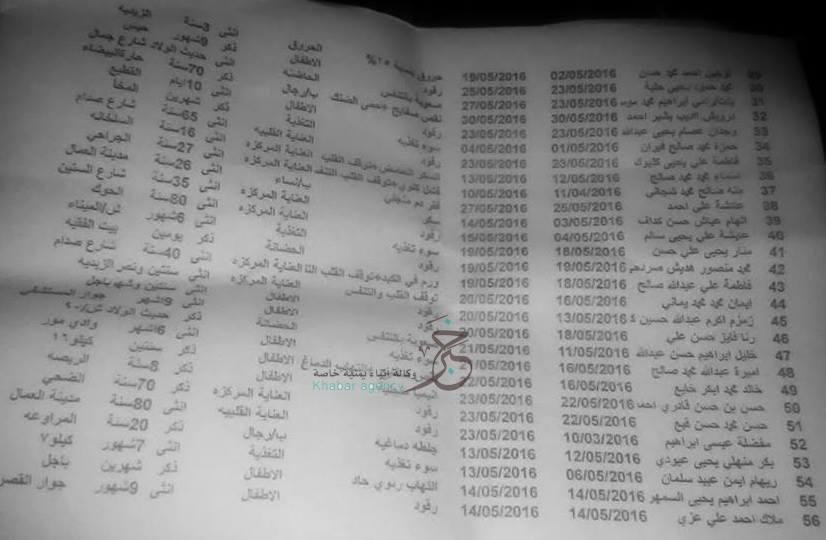 29 نرجس احمد محمد حسن 02/05/2016 19/05/2016 حروق بنسبة ٢٥% الحروق انثى 3سنة الزيديه
30 محمد حمود يحيى حلبة 23/05/2016 25/05/2016 رقود الاطفال ذكر 9شهور حيس
31 ابراهيم محمد 23/05/2016 27/05/2016 صعوبة بالتنفس الحاضنه انثى حديث الولاد شارع جمال
32 درويش اديب بشير احمد 30/05/2016 30/05/2016 نقص صفايح +حمى الضنك ب/رجال ذكر 70سنة حارةالبيضاء
33 وجدان عصام يحيى عبدالله 23/05/2016 23/05/2016 رقود الاطفال انثى 10ايام القطيع
34 حمزة محمد صالح قيران 01/05/2016 04/05/2016 سوء تغذيه التغذية ذكر شهرين المخا
35 فاطمة علي يحيى 23/05/2016 23/05/2016 رقود العناية القلبيه انثى 65سنة شارع صدام
36 اسماء محمد محمد صالح 12/05/2016 13/05/2016 السكر +توقف القلب العناية المركزه انثى 16سنة السلخانه
37 منه صالح محمد شجاني 11/04/2016 10/05/2016 فشل كلوي +توقف القلب العناية المركزه انثى 27سنة الجراحي
38 عائشة علي احمد 25/05/2016 27/05/2016 فقر دم منجلي ب/نساء انثى 26سنة مدينة العمال
39 الهام عياش حسن كداف 03/05/2016 14/05/2016 سكر العناية المركزه انثى 35سنة شارع الستين
40 عايشة علي يحيى سالم 04/05/2016 15/05/2016 رقود العناية المركزه انثى 80سنة الحوك
41 منار يحيى علي حسن 18/05/2016 19/05/2016 سوء تغذيه التغذية انثى 6شهور ش/الميناء
42 محمد منصور هديش 19/05/2016 19/05/2016 رقود الحضانة ذكر يومين بيت الفقيه
43 فاطمة علي عبدالله صالح 18/05/2016 19/05/2016 ورم في الكبد+توقف القلب العناية المركزه انثى 40سنة شارع صدام
44 ايمان محمد محمد يماني 16/05/2016 20/05/2016 توقف القلب والتنفس العناية المركزه انثى سنتين ونصر الزيديه
45 زمزم اكرم عبدالله حسين 13/05/2016 20/05/2016 رقود الاطفال انثى سنتين باجل
46 رنا فايز حسن علي 18/05/2016 20/05/2016 صعوبة بالتنفس الاطفال انثى 9شهر جوار المستشفى
47 خليل ابراهيم حسن عبدالله 11/05/2016 21/05/2016 سوء تغذيه الحضانة ذكر حديث الولاد
48 اميرة عبدالله محمد صالح 16/05/2016 21/05/2016 الدماغ الاطفال انثى 6اشهر وادي مور
49 خالد محمد ابكر خليع 16/05/2016 22/05/2016 انيميا الاطفال ذكر سنتين كيلو١٦
50 حسن بن حسن قادري احمد 22/05/2016 23/05/2016 رقود الاطفال ذكر 8سنة الربصه
51 حسن محمد حسن قبع 22/05/2016 23/05/2016 رقود العناية المركزه ذكر 70سنة الضحي
52 مفضلة عيسى ابراهيم 10/03/2016 23/05/2016 جلطه دماغيه العناية القلبيه انثى 80سنة مدينة العمال
53 بكر منهلي يحيى عبودي 12/05/2016 13/05/2016 سوء تغذيه ب/رجال ذكر 20سنة المراوعه
54 ريهام ايمن عبيد سلمان 06/05/2016 13/05/2016 التهاب رئوي حاد التغذية انثى 7شهور كيلو٧
55 احمد ابراهيم يحيى السمهر 14/05/2016 14/05/2016 الاطفال ذكر شهرين باجل
56 ملاك احمد علي عزي 14/05/2016 14/05/2016 رقود الاطفال انثى 9شهور جوار القصر
خبر
وكالة أنباء يمنية خاصة
Khabar agency